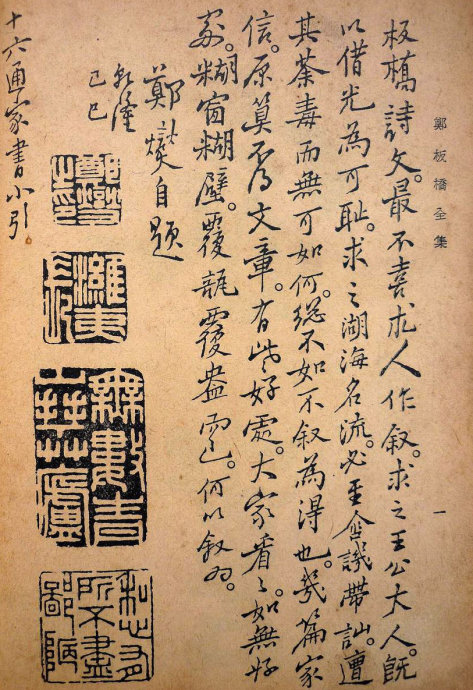 鄭板橋全集
一
板橋詩文最不喜求人作叙。求之王公大人。既
以借光為可恥。求之湖海名流。必至含譏帶訕。遭
其荼毒而無可如何。總不如不叙為得也。幾篇家
信。原算不得文章。有些好處。大家看〻。如無好
處。糊窗糊壁。覆瓿覆盎而已。何以叙為。
鄭燮自題
乾隆
己巳
鄭燮
之印
濰夷
長
無數青
山拜草廬
私心有
所不盡
鄙陋
十六通家書小引